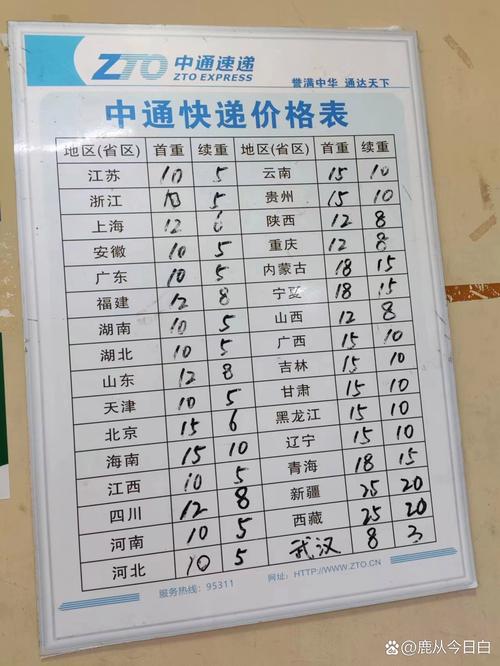 ZTO 中通速递
ZTO EXPRESS
誉满中华 通达天下
中通快递价格表
地区(省区) 首重 续重 地区(省区) 首重 续重
江苏 10 5 云南 15 10
浙江 10 5 贵州 15 10
上海 12 6 陕西 12 8
安徽 10 5 重庆 12 8
广东 10 5 内蒙古 18 15
福建 12 8 宁夏 18 15
湖南 10 5 山西 12 8
湖北 10 5 广西 15 10
山东 12 8 吉林 15 10
天津 10 5 甘肃 15 10
北京 15 6 黑龙江 15 10
海南 15 10 辽宁 15 10
江西 10 5 青海 18 15
四川 12 8 新疆 25 20
河南 10 5 西藏 25 20
河北 10 5 武汉 8 3
服务热线：95311 网址：HTTP://WWW.ZTO.CN
@鹿从今日白